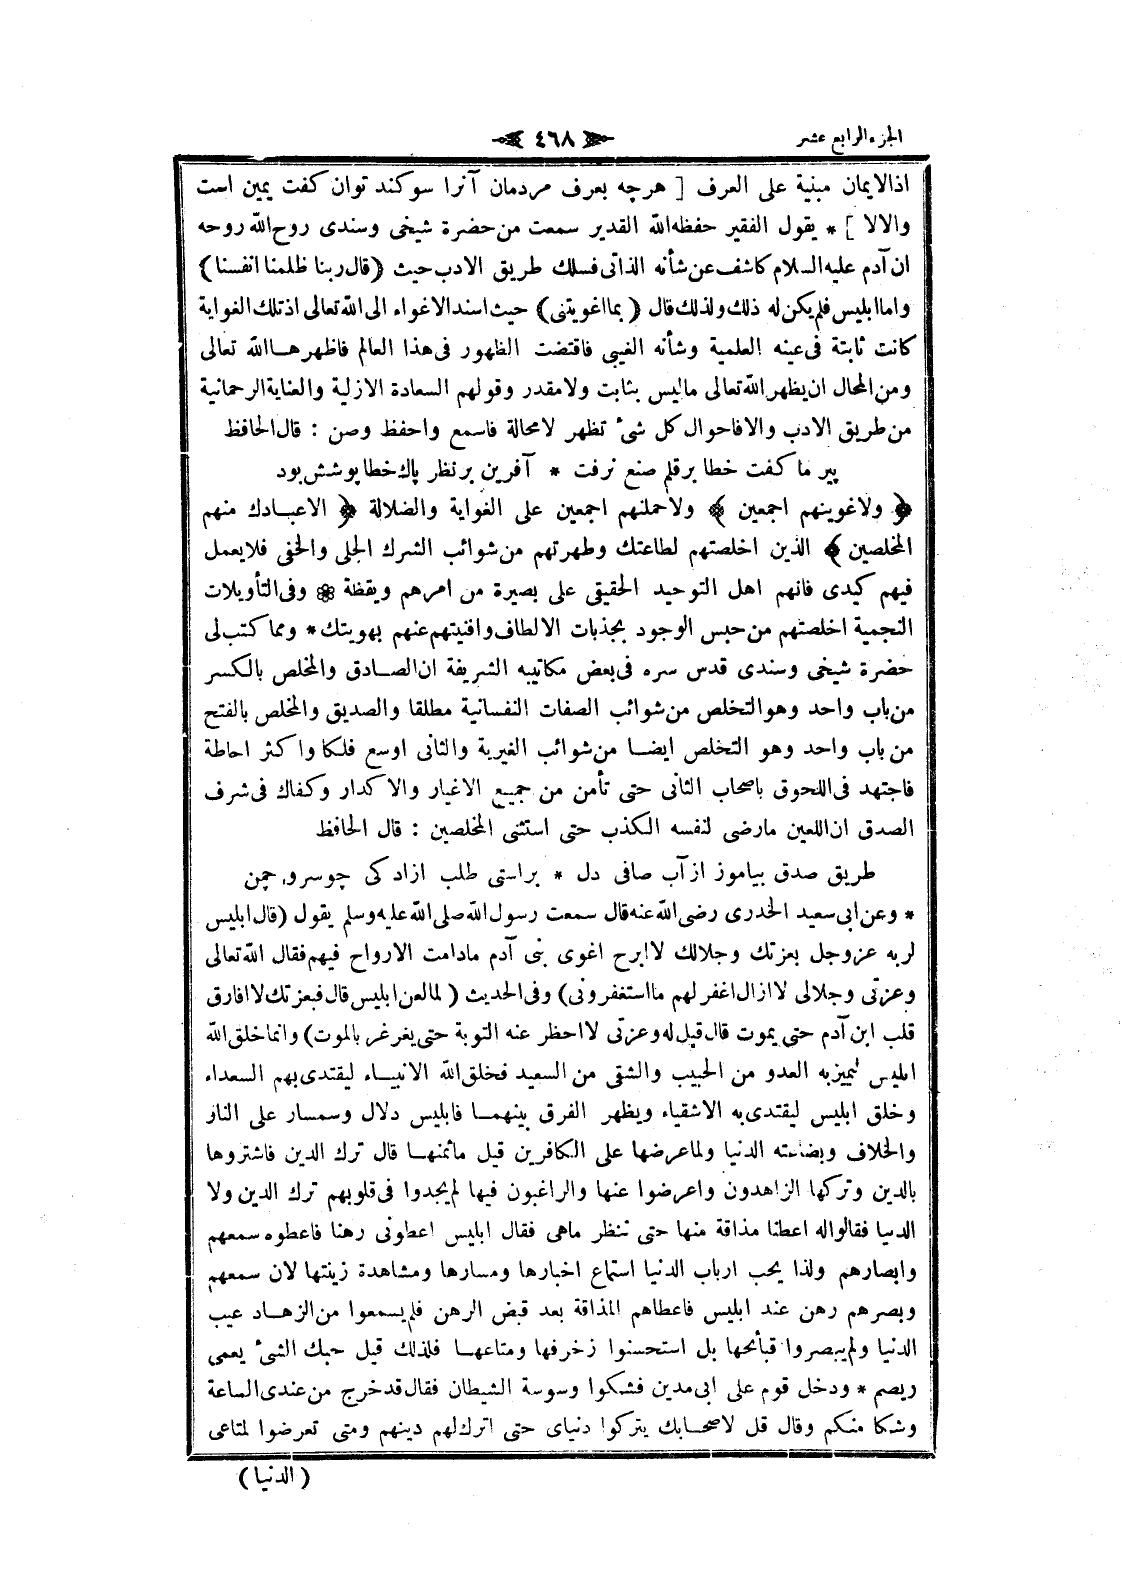 الجزء الرابع عشر
٤٦٨
اذ الايمان مبنية على العرف [ هرچه بعرف مردمان آنرا سوكند توان كفت يمين است
والالا ] * يقول الفقير حفظه الله القدير سمعت من حضرة شيخى وسندى روح الله روحه
ان آدم عليه السلام كاشف عن شأنه الذاتى فسلك طريق الادب حيث ( قال ربنا ظلمنا انفسنا )
واما ابليس فلم يكن له ذلك ولذلك قال ( بما اغويتنى ) حيث اسند الاغواء الى الله تعالى اذ تلك الغواية
كانت ثابتة فى عينه العلمية وشأنه الغيبى فاقتضت الظهور فى هذا العالم فاظهرها الله تعالى
ومن المحال ان يظهر الله تعالى ماليس بثابت ولا مقدر وقولهم السعادة الازلية والعناية الرحمانية
من طريق الادب والا فاحوال كل شئ تظهر لا محالة فاسمع واحفظ وصن : قال الحافظ
پير ما كفت خطا بر قلم صنع نرفت * آفرين بر نظر پاك خطا پوشش بود
﴿ ولاغوينهم اجمعين ﴾ ولاحملنهم اجمعين على الغواية والضلالة ﴿ الا عبادك منهم
المخلصين ﴾ الذين اخلصتهم لطاعتك وطهرتهم من شوائب الشرك الجلى والخفى فلا يعمل
فيهم كيدى فانهم اهل التوحيد الحقيقى على بصيرة من امرهم ويقظة ❀ وفى التأويلات
النجمية اخلصتهم من حبس الوجود بجذبات الالطاف وافنيتهم عنهم بهويتك * ومما كتب لى
حضرة شيخى وسندى قدس سره فى بعض مكاتيبه الشريفة ان الصادق والمخلص بالكسر
من باب واحد وهو التخلص من شوائب الصفات النفسانية مطلقا والصديق والمخلص بالفتح
من باب واحد وهو التخلص ايضا من شوائب الغيرية والثانى اوسع فلكا واكثر احاطة
فاجتهد فى اللحوق باصحاب الثانى حتى تأمن من جميع الاغيار والاكدار وكفاك فى شرف
الصدق ان اللعين مارضى لنفسه الكذب حتى استثنى المخلصين : قال الحافظ
طريق صدق بياموز از آب صافى دل * براستى طلب ازادكى چو سرو چمن
* وعن ابى سعيد الخدرى رضى الله عنه قال سمعت رسول الله صلى الله عليه وسلم يقول ( قال ابليس
لربه عز وجل بعزتك وجلالك لا ابرح اغوى بنى آدم مادامت الارواح فيهم فقال الله تعالى
وعزتى وجلالى لا ازال اغفر لهم ما استغفرونى ) وفى الحديث ( لما لعن ابليس قال فبعزتك لا افارق
قلب ابن آدم حتى يموت قال قيل له وعزتى لا احظر عنه التوبة حتى يغرغر بالموت ) وانما خلق الله
ابليس ليميز به العدو من الحبيب والشقى من السعيد فخلق الله الانبياء ليقتدى بهم السعداء
وخلق ابليس ليقتدى به الاشقياء ويظهر الفرق بينهما فابليس دلال وسمسار على النار
والخلاف وبضاعته الدنيا ولما عرضها على الكافرين قيل ماثمنها قال ترك الدين فاشتروها
بالدين وتركها الزاهدون واعرضوا عنها والراغبون فيها لم يجدوا فى قلوبهم ترك الدين ولا
الدنيا فقالوا له اعطنا مذاقة منها حتى ننظر ماهى فقال ابليس اعطونى رهنا فاعطوه سمعهم
وابصارهم ولذا يحب ارباب الدنيا استماع اخبارها ومسارها ومشاهدة زينتها لان سمعهم
وبصرهم رهن عند ابليس فاعطاهم المذاقة بعد قبض الرهن فلم يسمعوا من الزهاد عيب
الدنيا ولم يبصروا قبائحها بل استحسنوا زخرفها ومتاعها فلذلك قيل حبك الشئ يعمى
ويصم * ودخل قوم على ابى مدين فشكوا وسوسة الشيطان فقال قد خرج من عندى الساعة
وشكا منكم وقال قل لاصحابك يتركوا دنياى حتى اترك لهم دينهم ومتى تعرضوا لمتاعى
( الدنيا )